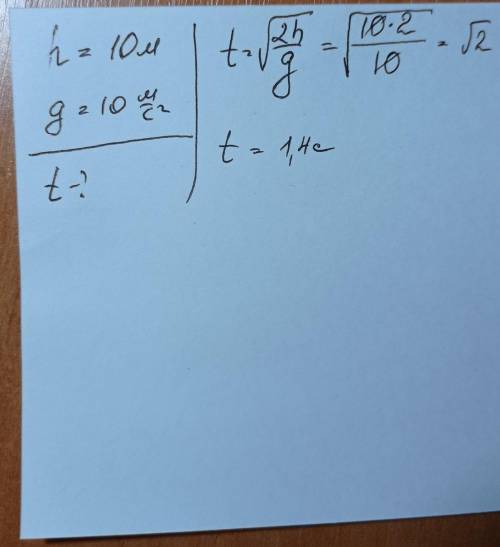 h = 10м
g = 10 м/с²
t - ?
t = √(2h/g) = √(10·2/10) = √2
t = 1,4с